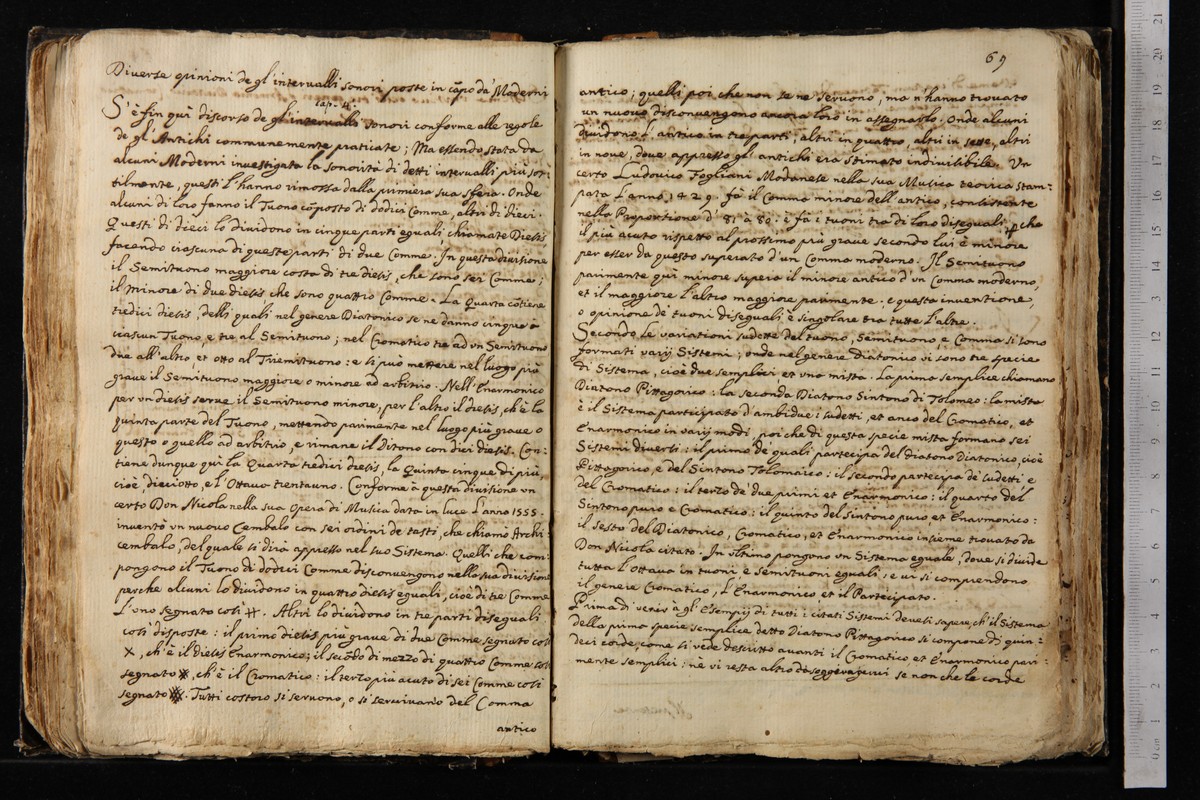 Diverse opinioni de gl'intervalli sonori poste in cãpo da' Moderni
Cap. 4.
S'è fin quì discorso de gl'intervalli sonori conforme alle regole
de gl'Antichi communemente praticate; Ma essendo stata da
alcuni Moderni investigata la sonorità di detti intervalli più sot-
tilmente, questi l'hanno rimossa dalla primiera sua sfera. Onde
alcuni di loro fanno il Tuono cõposto di dodici Comme, altri di dieci.
Questi di dieci lo dividono in cinque parti eguali, chiamate Diesis
facendo ciascuna di queste parti di due Comme. In questa divisione
il Semituono maggiore costa di tre diesis, che sono sei Comme;
il minore di due diesis che sono quattro Comme. La Quarta cõtiene
tredici diesis, delli quali nel genere Diatonico se ne danno cinque a
ciascun Tuono, e tre al Semituono; nel Cromatico tre ad un Semituono
due all'altro, et otto al Triemituono: e si può mettere nel luogo più
grave il Semituono maggiore o minore ad arbitrio. Nell'Enarmonico
per un diesis serve il Semituono minore, per l'altro il diesis, ch'è la
quinta parte del Tuono, mettendo parimente nel luogo più grave o
questo o quello ad arbitrio, e rimane il Ditono con dieci diesis. Con-
tiene dunque quì la Quarta tredici diesis, la Quinta cinque di più,
cioè, dieciotto, e l'Ottava trentauno. Conforme à questa divisione un
certo Don Nicola nella sua Opera di Musica data in luce l'anno 1555.
inventò un nuovo Cembalo con sei ordini de tasti, che chiamò Archi-
cembalo, del quale si dirà appresso nel suo Sistema. Quelli che com-
pongono il Tuono di dodici Comme disconvengono nella sua divisione
perche alcuni lo dividono in quattro diesis eguali, cioè di tre Comme
l'uno segnato così ⌗. Altri lo dividono in tre parti diseguali
così disposte: il primo diesis più grave di due Comme segnato così
×, ch'è il diesis Enarmonico; il secõdo di mezzo di quattro Comme così
segnato ⌗, ch'è il Cromatico: il terzo più acuto di sei Comme così
segnato ⌗. Tutti costoro si servono, o si servivano del Comma
antico
69
antico; quelli poi che non se ne servono, ma n'hanno trovato
un nuovo disconvengono ancora loro in assegnarlo. Onde alcuni
dividono l'antico in tre parti, altri in quattro, altri in sette, altri
in nove, dove appresso gl'antichi era stimato indivisibile. Un
certo Ludovico Fogliani Modanese nella sua Musica teorica stam-
pata l'anno 1529. fà il Comma minore dell'antico, consistente
nella Proportione d'81 à 80: è fà i tuoni trà di loro diseguali, perche
il più acuto rispetto al prossimo più grave secondo lui è minore
per esser da questo superato d'un Comma moderno. Il Semituono
parimente quì minore supera il minore antico d'un Comma moderno,
et il maggiore l'altro maggiore parimente. e questa inventione,
o opinione de' tuoni diseguali è singolare tra tutte l'altre.
Secondo le variationi sudette del tuono, Semituono e Comma si sono
formati varij Sistemi; onde nel genere Diatonico vi sono tre specie
di Sistema, cioè due semplici et una mista. La prima semplice chiamano
Diatono Pittagorico: la seconda Diatono Sintono di Tolomeo: la mista
è il Sistema participato d'ambidue i sudetti, et anco del Cromatico, et
Enarmonico in varij modi, poiche di questa specie mista formano sei
Sistemi diversi: il primo de quali partecipa del diatono Diatonico, cioè
Pittagorico, e del Sintono Tolomaico: il secondo partecipa de' sudetti e
del Cromatico: il terzo de' due primi et Enarmonico: il quarto del
Sintono puro e Cromatico: il quinto del Sintono puro et Enarmonico:
il sesto del Diatonico, Cromatico, et Enarmonico insieme trovato da
Don Nicola citato. In ultimo pongono un Sistema eguale, dove si divide
tutta l'Ottava in tuoni e semituoni eguali: e vi si comprendono
il genere Cromatico, l'Enarmonico et il Partecipato.
Prima di venir à gl'Esempij di tutti i citati Sistemi devesi sapere, ch'il Sistema
della prima specie semplice detto Diatono Pittagorico si compone di quin-
deci corde, come si vede descritto avanti il Cromatico et Enarmonico pari-
mente semplici: ne vi resta altro da soggiungervi se non che le corde